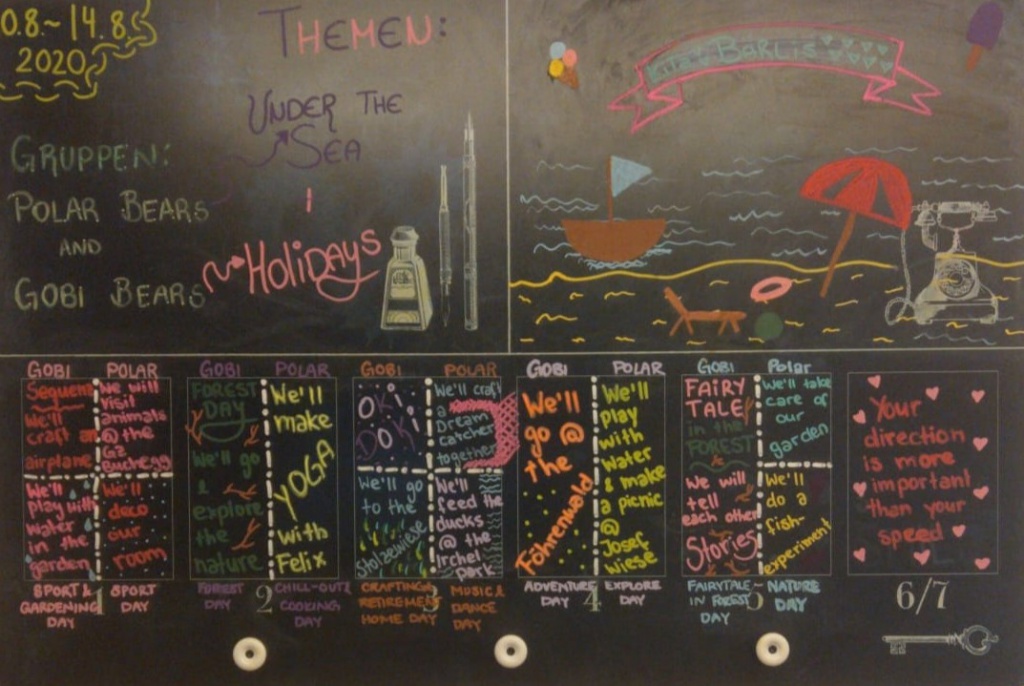 0.8.~14.8.
2020
THEMEN:
UNDER THE
SEA
HoliDAYS
GRUPPEN:
POLAR BEARS
AND
GOBI BEARS
KITZ BARLIS
GOBI
Sequens
we'll
craft an
airplane
We'll
play with
water
in the
garden
SPORT &
GARDENING
DAY
POLAR
We will
visit
animals
@ the
GZ
Buchegg
We'll
deco
our
room
SPORT
DAY
1
GOBI
FOREST
DAY
We'll go
&
explore
the
nature
FOREST
DAY
2
POLAR
We'll
make
YOGA
with
Felix
CHILL-OUT &
COOKING
DAY
GOBI
OKi
DOKi
We'll go
to the
Stolzewiese
CRAFTING &
RETIREMENT
HOME DAY
3
POLAR
We'll craft
a
Dream
catcher
together
We'll
feed the
ducks
@ the
Irchel
park
MUSIC &
DANCE
DAY
GOBI
We'll
go @
the
Föhrenwald
ADVENTURE
DAY
4
POLAR
We'll
play
with
water
& make
a picnic
@
Josef
wiese
EXPLORE
DAY
GOBI
FAIRY
TALE
in the
FOREST
We will
tell
each other
Stories
FAIRYTALE
IN FOREST
DAY
5
Polar
We'll take
care of
our
garden
We'll
do a
fish-
experiment
NATURE
DAY
Your
direction
is more
important
than your
speed
6/7